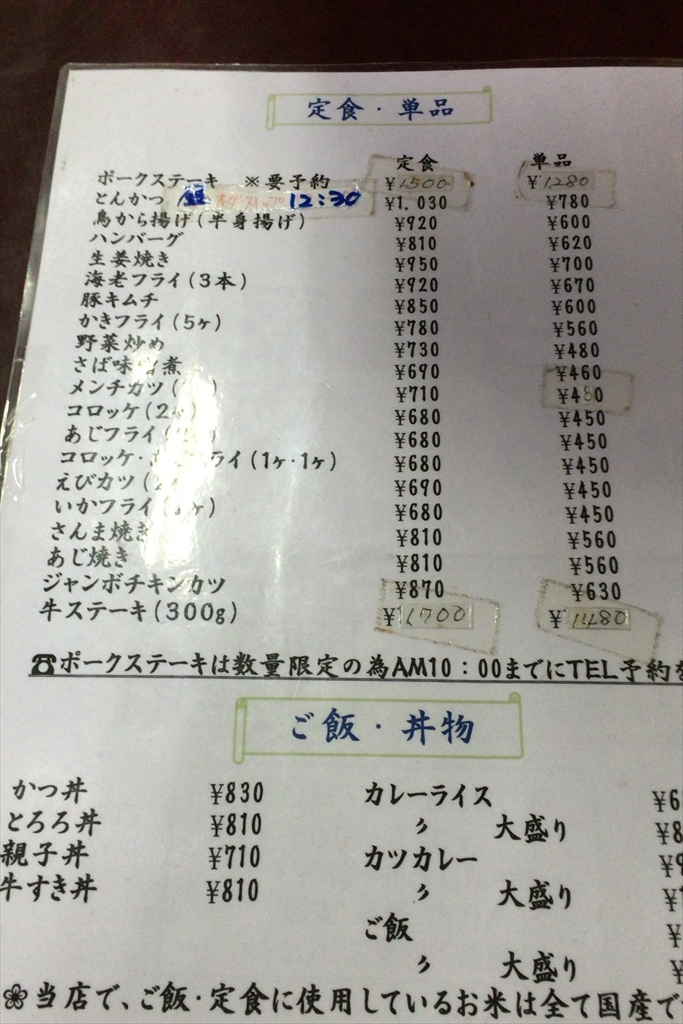 定食・単品
定食 単品
ポークステーキ ※要予約 ¥1500 ¥1280
とんかつ 12:30 ¥1,030 ¥780
鳥から揚げ(半身揚げ) ¥920 ¥600
ハンバーグ ¥810 ¥620
生姜焼き ¥950 ¥700
海老フライ(3本) ¥920 ¥670
豚キムチ ¥850 ¥600
かきフライ(5ヶ) ¥780 ¥560
野菜炒め ¥730 ¥480
さば味噌煮 ¥690 ¥460
メンチカツ ¥710 ¥480
コロッケ(2ヶ) ¥680 ¥450
あじフライ ¥680 ¥450
コロッケ・ ライ(1ヶ・1ヶ) ¥680 ¥450
えびカツ ¥690 ¥450
いかフライ ¥680 ¥450
さんま焼き ¥810 ¥560
あじ焼き ¥810 ¥560
ジャンボチキンカツ ¥870 ¥630
牛ステーキ(300g) ¥1700 ¥1480
☎ポークステーキは数量限定の為AM10:00までにTEL予約を
ご飯・丼物
かつ丼 ¥830 カレーライス ¥6
とろろ丼 ¥810 〃 大盛り ¥8
親子丼 ¥710 カツカレー ¥9
牛すき丼 ¥810 〃 大盛り ¥1
ご飯 ¥
〃 大盛り ¥
❀当店で、ご飯・定食に使用しているお米は全て国産で